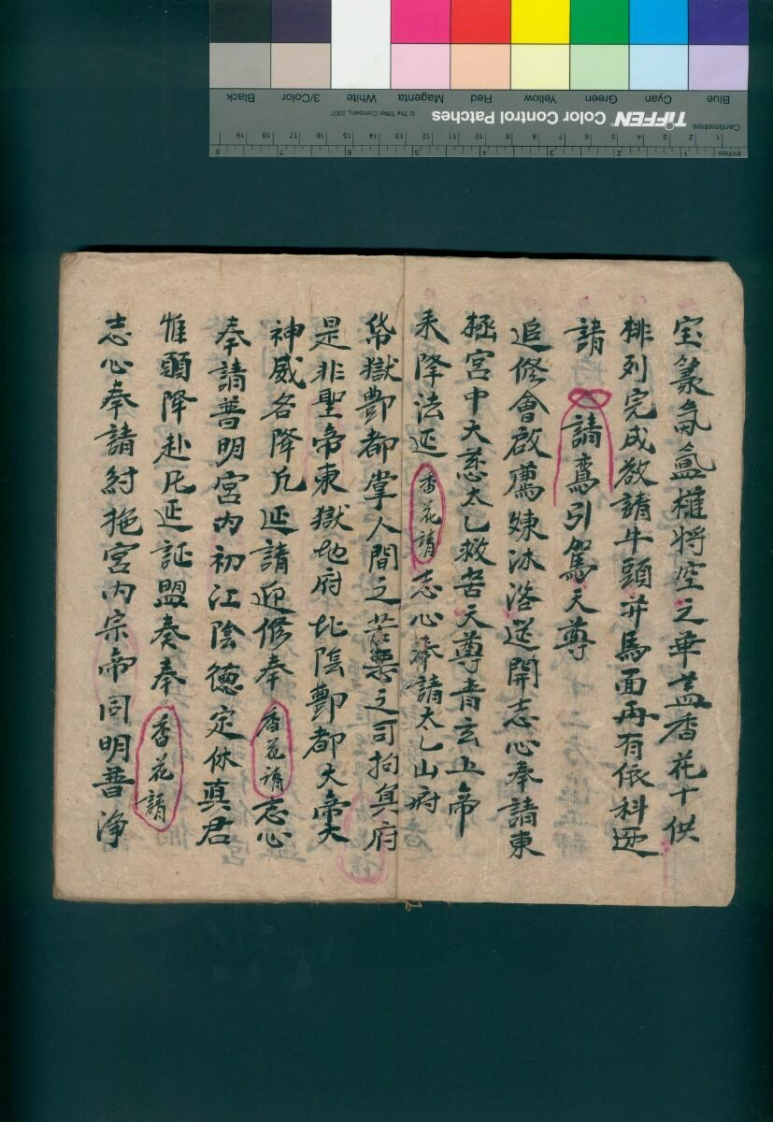 宝篆氤氳權將空之華盖香花十供
排列完成教請牛頭并馬面再有依科迎
請 請鸞引駕天尊
追修會啟薦煉沐浴筵開志心奉請東
極宮中大慈太乙救苦天尊青玄上帝
來降法延 香花請 志心奉請太乙山府
岱獄酆都掌人間之苦樂之司拘真府
是非聖帝東獄地府北陰酆都大帝大
神威各降凡延請迎修奉 香花請 志心
奉請普明宮內初江陰德定休真君
惟願降赴凡延証盟奏奉 香花請
志心奉請紂拖宮內宗帝同明普淨
TIFFEN Color Control Patches
© The Tiffen Company, 2007
Blue Cyan Green Yellow Red Magenta White 3/Color Black
Centimetres
Inches